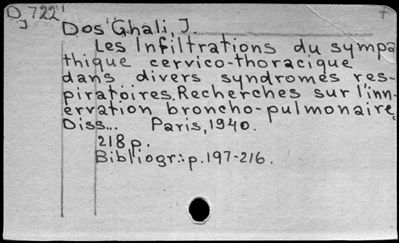 D,722
J
Dos Ghali, J.
Les Infiltrations du sympa
thique cervico-thoracique
dans divers syndromes res-
piratoires. Recherches sur l'inn-
ervation broncho-pulmonaire.
Diss... Paris, 1940.
218 p.
Bibliogr.: p. 197-216.